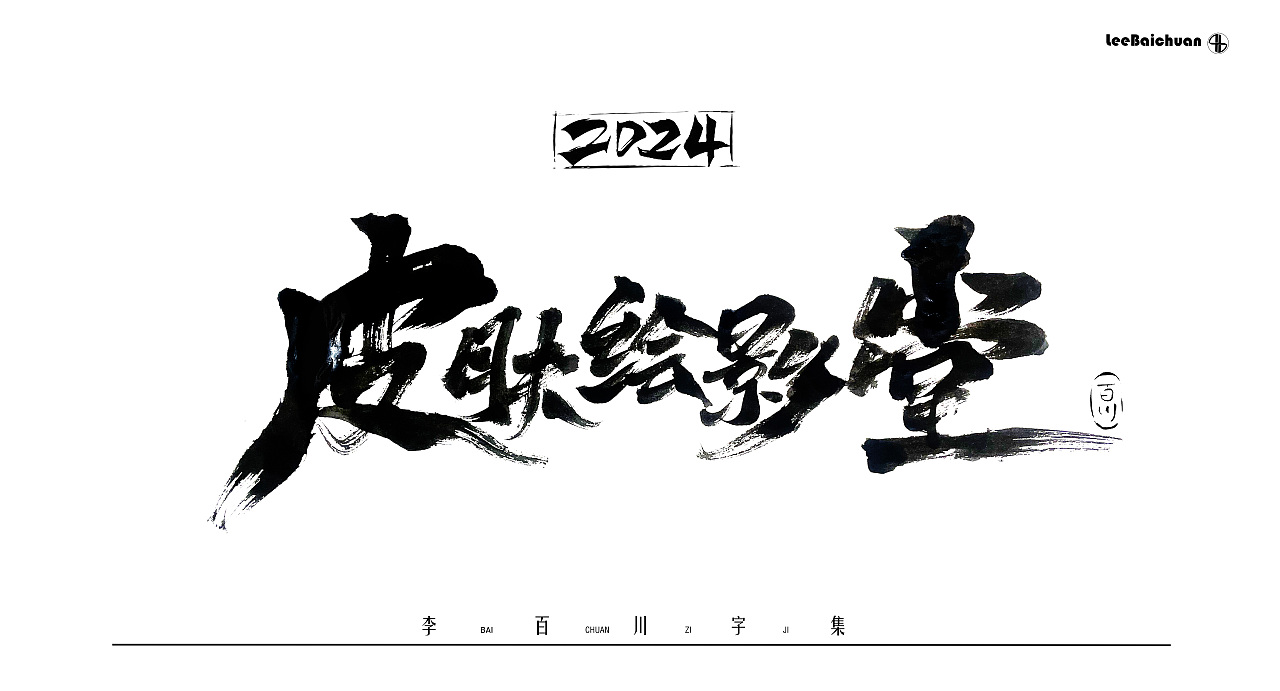 LeeBaichuan
2024
皮肤绘影堂
百川
李 BAI 百 CHUAN 川 ZI 字 JI 集